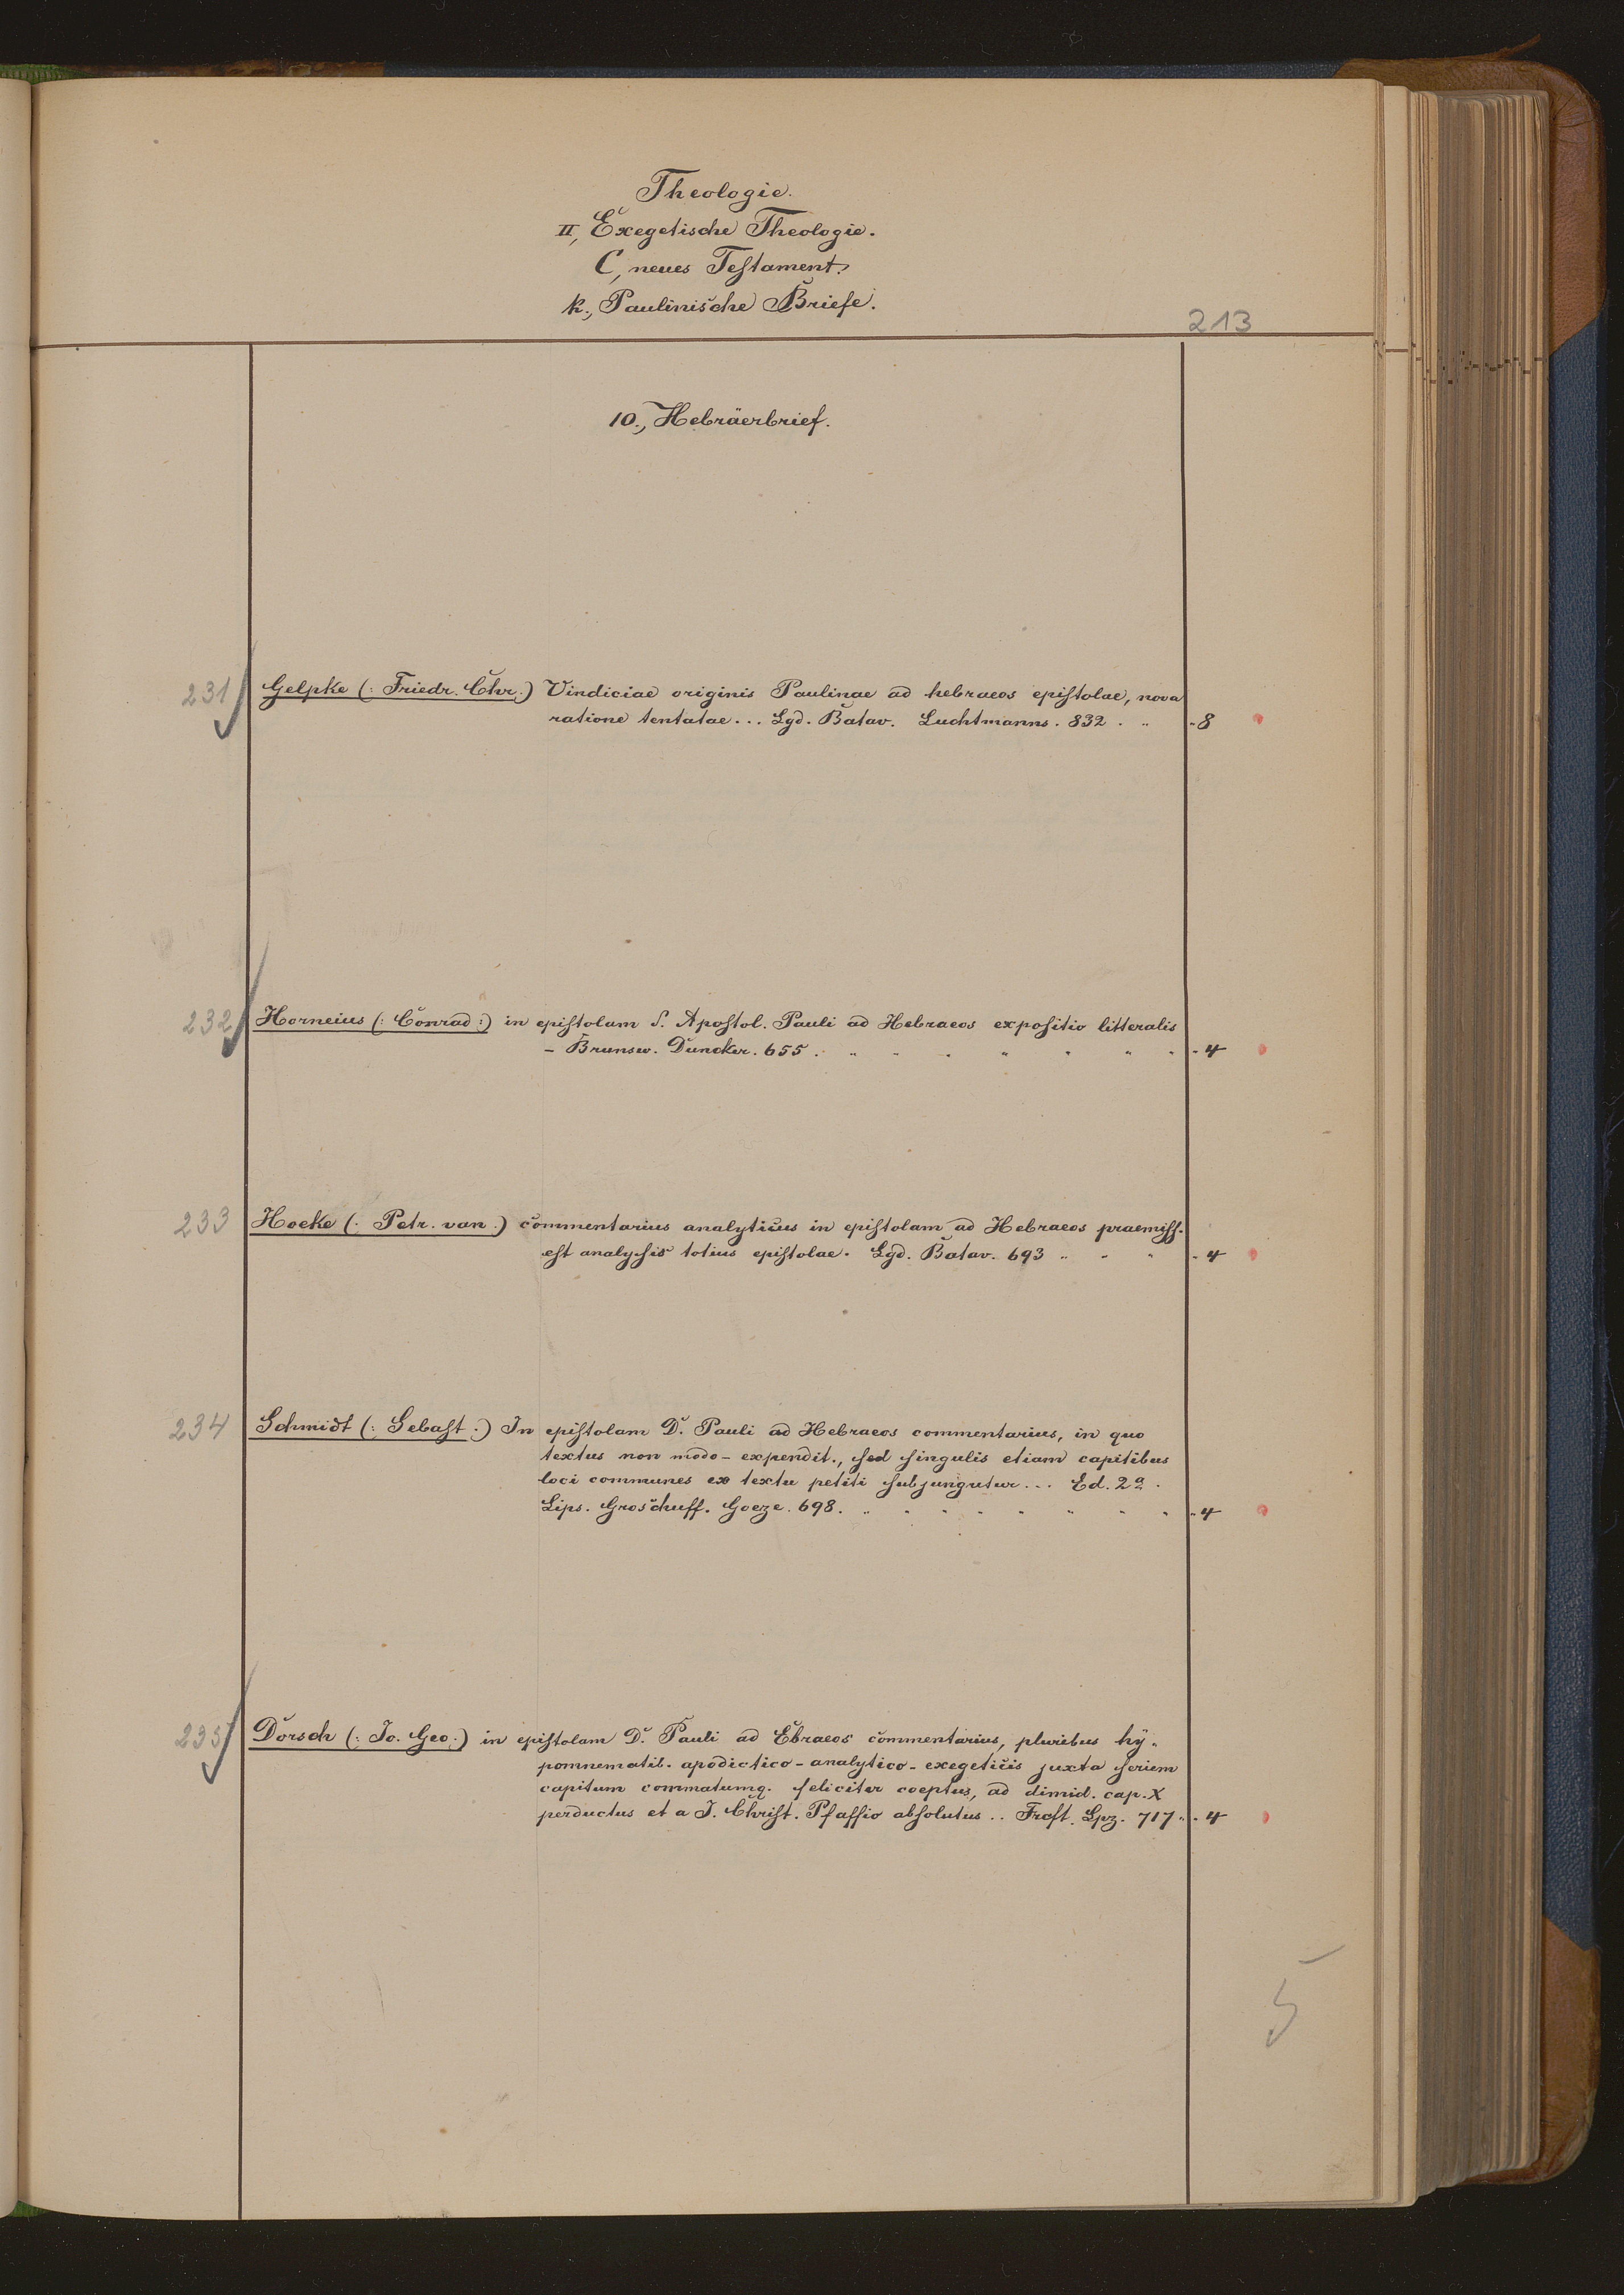 Theologie.
II, Exegetische Theologie.
C, neues Testament.
k., Paulinische Briefe.
213
10., Hebräerbrief.
231 Gelpke (: Friedr. Chr.) Vindiciae originis Paulinae ad hebraeos epistolae, nova
ratione tentatae... Lgd. Batav. Luchtmanns. 832. " " 8
232 Horneius (: Conrad :) in epistolam S. Apostol. Pauli ad Hebraeos expositio litteralis
- Brunsw. Duncker. 655. " " " " " " " " 4
233 Hoeke (: Petr. van :) commentarius analyticus in epistolam ad Hebraeos praemiss.
est analysis totius epistolae. Lgd. Batav. 693 " " " " 4
234 Schmidt (: Sebast :) In epistolam D. Pauli ad Hebraeos commentarius, in quo
textus non modo - expendit., sed singulis etiam capitibus
loci communes ex textu petiti subjungutur... Ed. 2a.
Lips. Groschuff. Goeze. 698. " " " " " " " " " 4
235 Dorsch (: Jo. Geo :) in epistolam D. Pauli ad Ebraeos commentarius, pluribus hy-
pomnematib. apodictico-analytico-exegeticis juxta seriem
capitum commatumq. feliciter coeptus, ad dimid. cap. X
perductus et a J. Christ. Pfaffio absolutus.. Frcft. Lpz. 717 " " 4
5